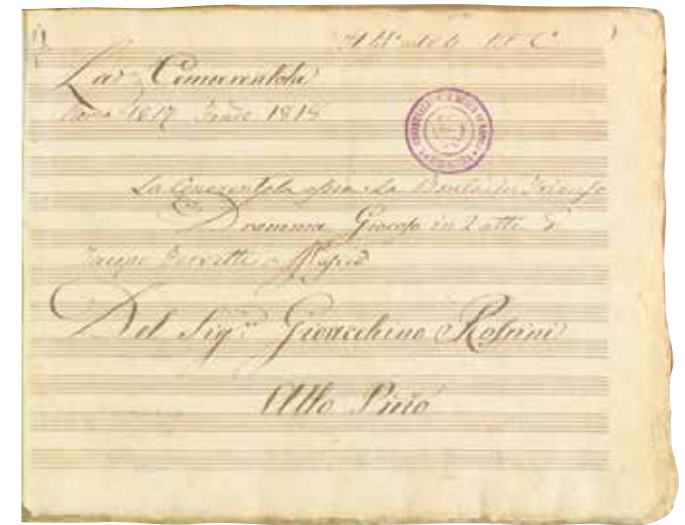 La Cenerentola
Roma 1817 1818
La Cenerentola ossia La Bontà in Trionfo
Dramma Giocoso in 2 atti di
Del Sigr. Gioacchino Rossini
Atto Primo